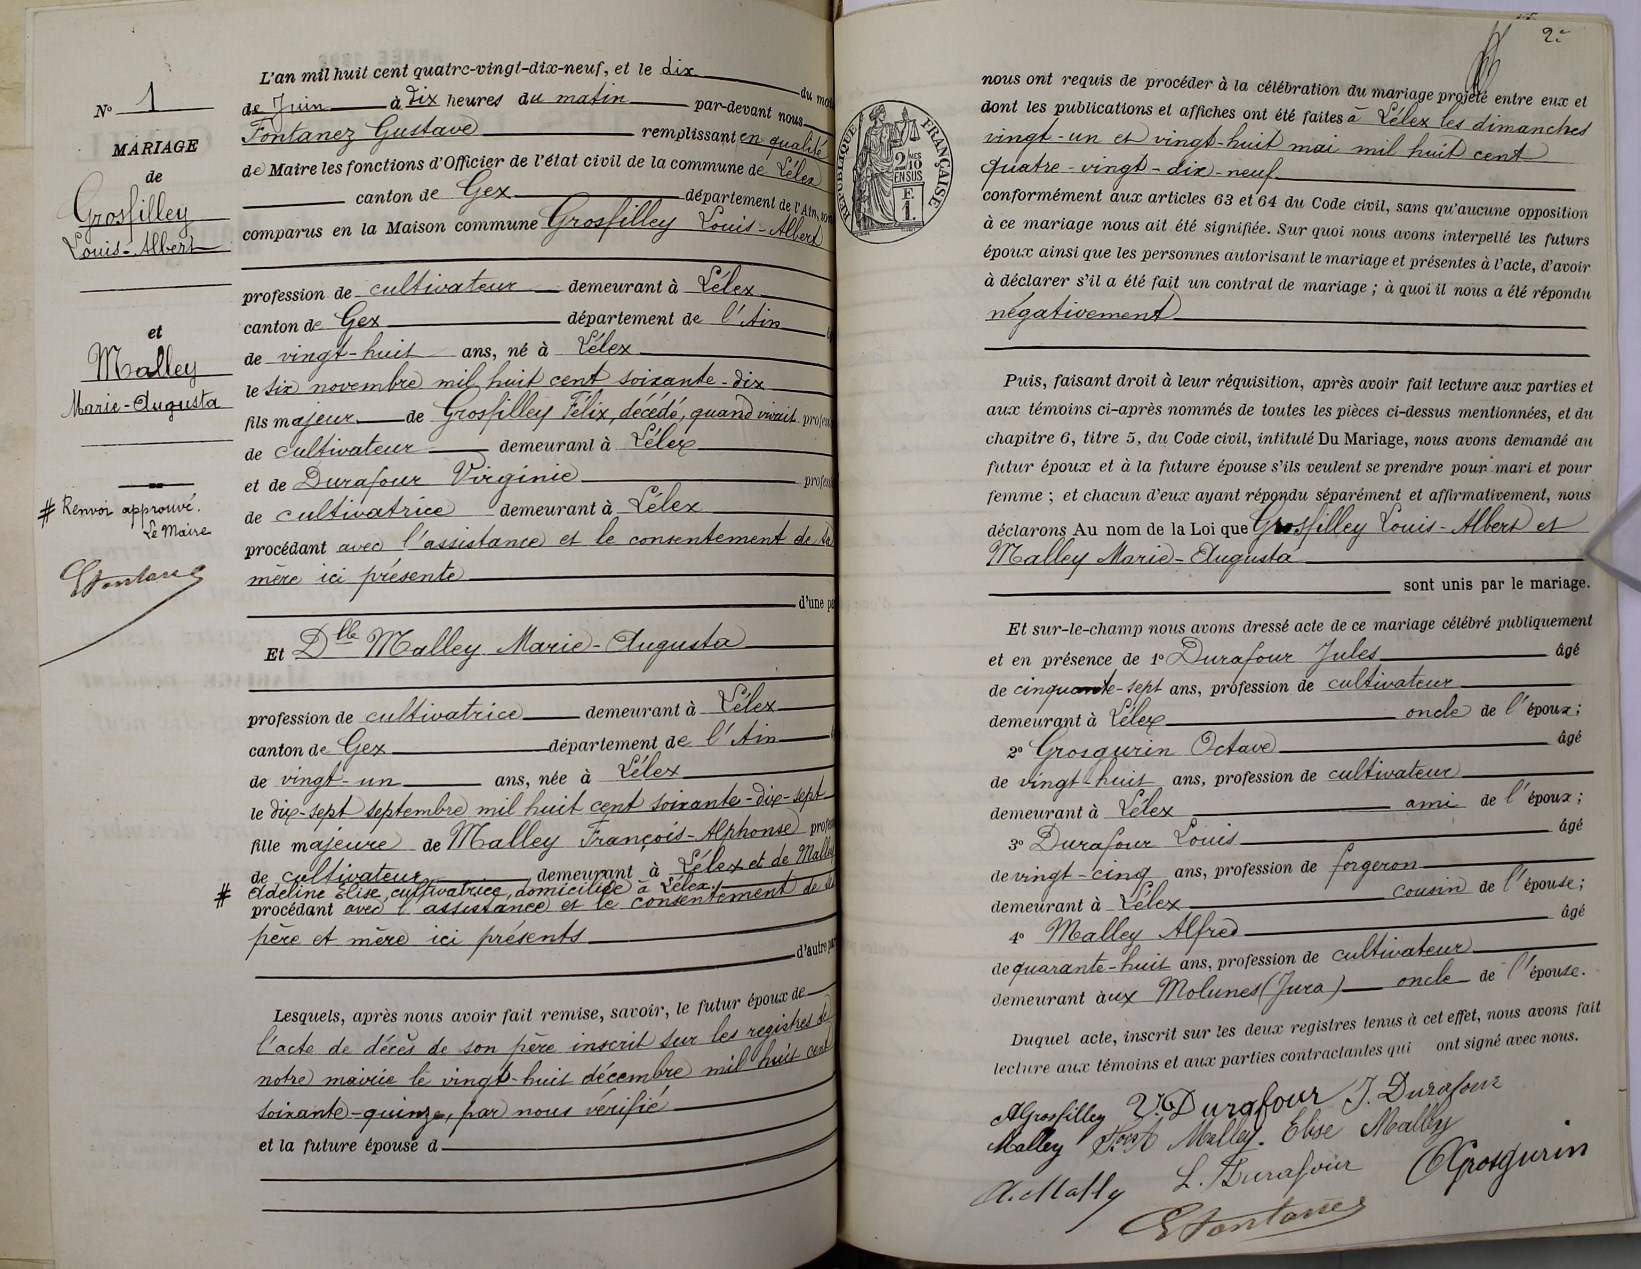 N° 1
MARIAGE
de
Grosfilley
Louis-Albert
et
Malley
Marie-Augusta
# Renvoi approuvé.
Le Maire
GFontanez
L'an mil huit cent quatre-vingt-dix-neuf, et le dix du mois
de Juin à dix heures du matin par-devant nous
Fontanez Gustave remplissant en qualité
de Maire les fonctions d'Officier de l'état civil de la commune de Lélex
canton de Gex département de l'Ain, sont
comparus en la Maison commune Grosfilley Louis-Albert
profession de cultivateur demeurant à Lélex
canton de Gex département de l'Ain
de vingt-huit ans, né à Lélex
le six novembre mil huit cent soixante-dix
fils majeur de Grosfilley Félix, décédé, quand vivait profess
de cultivateur demeurant à Lélex
et de Durafour Virginie profess
de cultivatrice demeurant à Lélex
procédant avec l'assistance et le consentement de sa
mère ici présente
d'une pa
Et Dlle Malley Marie-Augusta
profession de cultivatrice demeurant à Lélex
canton de Gex département de l'Ain
de vingt-un ans, née à Lélex
le dix-sept septembre mil huit cent soixante-dix-sept
fille majeure de Malley François-Alphonse profess
de cultivateur demeurant à Lélex et de Malley
# Adeline Elise, cultivatrice, domiciliée à Lélex.
procédant avec l'assistance et le consentement de ses
père et mère ici présents
d'autre par
Lesquels, après nous avoir fait remise, savoir, le futur époux de
l'acte de décès de son père inscrit sur les registres de
notre mairie le vingt-huit décembre mil huit cent
soixante-quinze, par nous vérifié
et la future épouse d
2e
RÉPUBLIQUE FRANÇAISE
2 MES
10
EN SUS
F
1.
nous ont requis de procéder à la célébration du mariage projeté entre eux et
dont les publications et affiches ont été faites à Lélex les dimanches
vingt-un et vingt-huit mai mil huit cent
quatre-vingt-dix-neuf
conformément aux articles 63 et 64 du Code civil, sans qu'aucune opposition
à ce mariage nous ait été signifiée. Sur quoi nous avons interpellé les futurs
époux ainsi que les personnes autorisant le mariage et présentes à l'acte, d'avoir
à déclarer s'il a été fait un contrat de mariage ; à quoi il nous a été répondu
négativement
Puis, faisant droit à leur réquisition, après avoir fait lecture aux parties et
aux témoins ci-après nommés de toutes les pièces ci-dessus mentionnées, et du
chapitre 6, titre 5, du Code civil, intitulé Du Mariage, nous avons demandé au
futur époux et à la future épouse s'ils veulent se prendre pour mari et pour
femme ; et chacun d'eux ayant répondu séparément et affirmativement, nous
déclarons Au nom de la Loi que Grosfilley Louis-Albert et
Malley Marie-Augusta
sont unis par le mariage.
Et sur-le-champ nous avons dressé acte de ce mariage célébré publiquement
et en présence de 1° Durafour Jules âgé
de cinquante-sept ans, profession de cultivateur
demeurant à Lélex oncle de l'époux ;
2° Grosgurin Octave âgé
de vingt-huit ans, profession de cultivateur
demeurant à Lélex ami de l'époux ;
3° Durafour Louis âgé
de vingt-cinq ans, profession de forgeron
demeurant à Lélex cousin de l'épouse ;
4° Malley Alfred âgé
de quarante-huit ans, profession de cultivateur
demeurant aux Molunes (Jura) oncle de l'épouse.
Duquel acte, inscrit sur les deux registres tenus à cet effet, nous avons fait
lecture aux témoins et aux parties contractantes qui ont signé avec nous.
AGrosfilley V. Durafour J. Durafour
Malley Malley. Elise Malley
A. Mally L. Durafour OGrosgurin
GFontanez